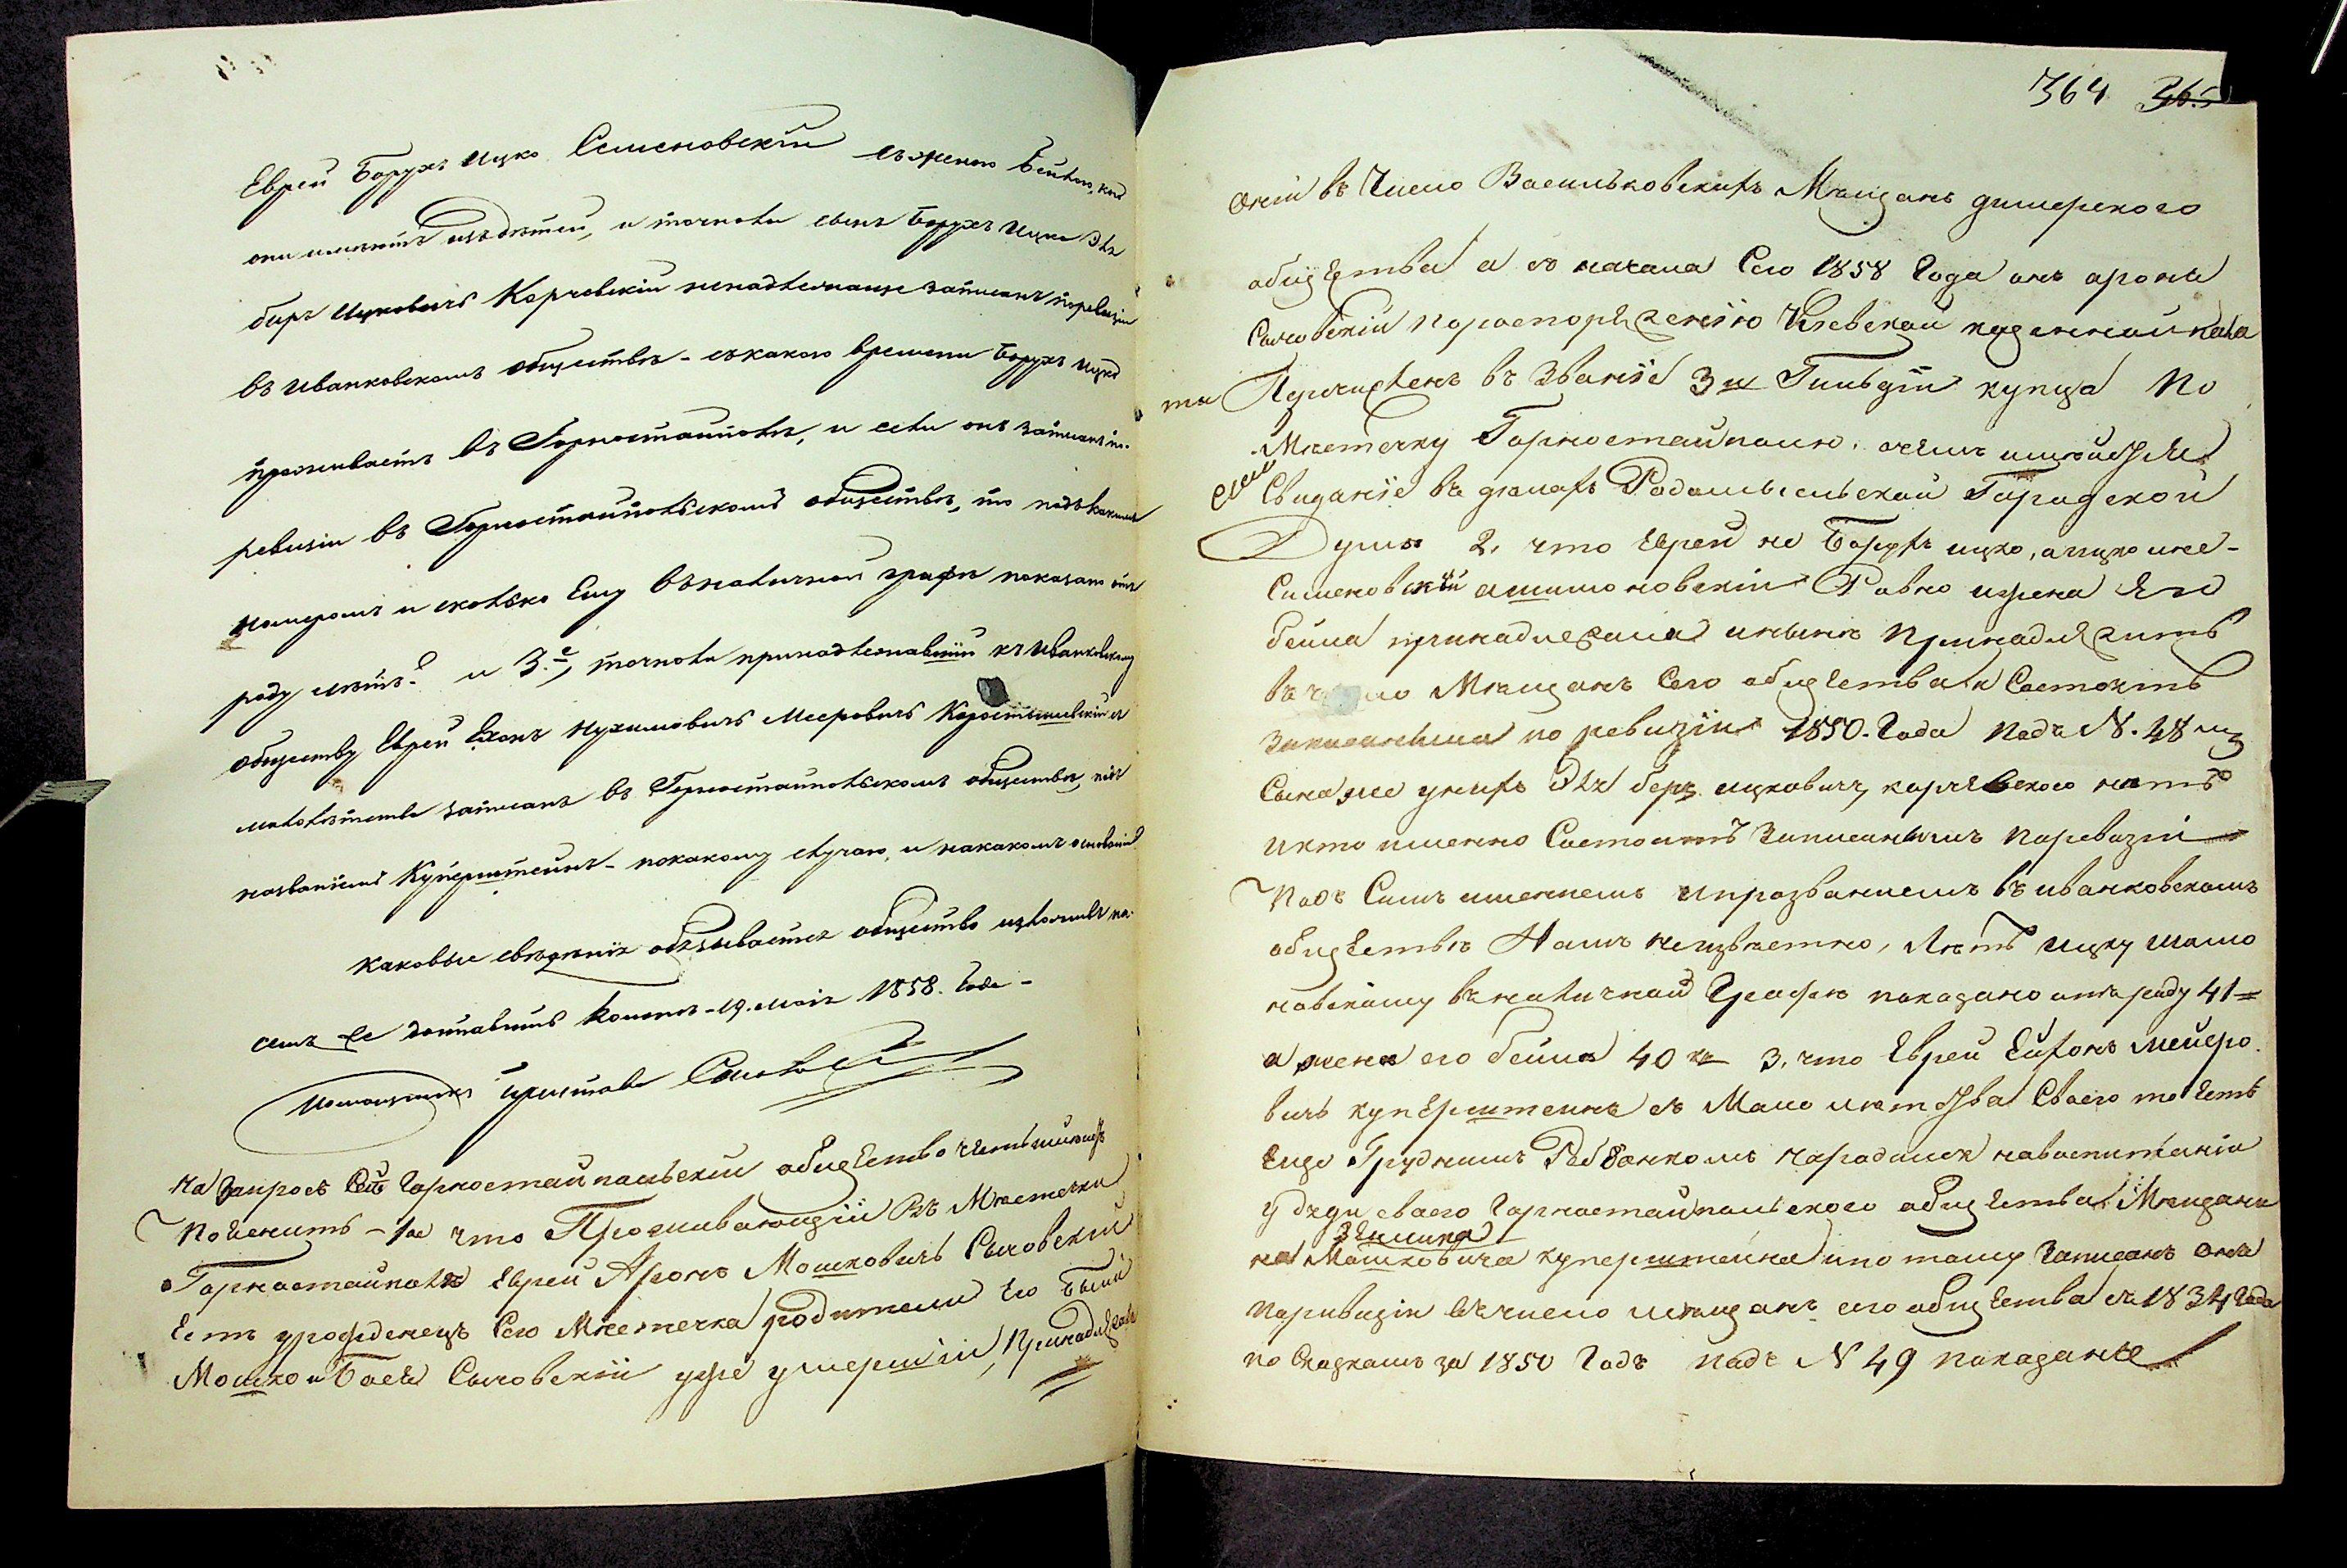 Еврей Борухъ Ицко Семеновскій съ женою Бейлою, кого
они имѣютъ изъ дѣтей, и точноли сынъ Борухъ Ицки Эль
беръ Ицковичъ Корчевскій ненадлежаще записанъ поревизіи
въ Иванковскомъ обществѣ - съ какого времени Борухъ Ицко
проживаетъ въ Горностайполѣ, и если онъ записанъ по
ревизіи въ Горностайпольскомъ обществѣ, то подъ какимъ
номеромъ и сколько Ему въ наличной графѣ показано отъ
роду лѣтъ? и 3.е, точноли принадлежавшій къ Иванковскому
обществу Еврей Ехонъ Нухимовичъ Мееровичъ Коростышевскій съ
малолѣтства записанъ въ Горностайпольскомъ обществѣ, подъ
названіемъ Куперштейнъ - покакому случаю, и накакомъ основаніи
каковые свѣденія обязывается общество изложивъ на
семъ же доставить Комнѣ - 19. маія 1858. Года -
Помощникъ пристава
На Запросъ Сей Горностайпальскій общество честь имѣетъ
Пояснить - 1е что Проживающій Въ Мѣстечки
Горностайполѣ Еврей Аронъ Мошковичъ Сыновскій
Естъ урожденецъ Сего Мѣстечка родители Его Были
Мошко и Бася Сыновскіи уже умершіи, Принадлежали
364 365
Оніи въ Число Васильковскихъ Мѣщанъ дымерского
общества а съ начала Сего 1858 Года онъ аронъ
Сыновскій порасторяженію Кіевской казенной Пала
ты Причисленъ въ Званіе 3й Гильдіи купца По
Мѣстечку Горностайполю. очемъ имѣйтся
Свиданіе въ дѣлахъ Радомысльской Городской
Думѣ 2. что Еврей не Борухъ ицко, а ицко ине-
Сименовскій ашимоновскій Равно ижена Его
бейла принадлежала инынѣ Принадлежитъ
въ число Мѣщанъ Сего общества и Состоятъ
Записанными по ревизіи 1850. Года Подъ N. 48 мъ
Сына же унихъ Эль беръ ицковичъ корчевского нѣтъ
икто именно Состоитъ Записанымъ Паревизіи
Подъ Симъ именнемъ ипрозваниемъ въ иванковскомъ
обществѣ Намъ неизвѣстно, Лѣтъ ицку шимо
новскому въ наличнай Графѣ показано отъ роду 41 =
а жена его бейла 40 ка 3. что Еврей Ейхонъ Мейеро
вичъ куперштейнъ съ Мало лѣтства Своего то Есть
Еще Груднимъ Ребѣонкомъ находился навоспитаніи
у дяди своего Горностайпольского общества Мѣщани
на Мошковича куперштейна ипо тому Записанъ Онъ
Паривизіи въ число мѣщанъ сего общества съ 1834 Года
по Сказкамъ за 1850 Годъ подъ N 49 показаные